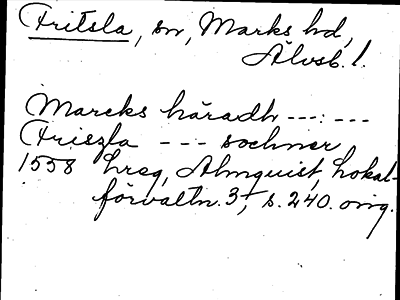 Fritsla, sn, Marks hd,
Älvsb. l.
Marcks häradh ---:---
Friszla --- sochner
1558 hreg, Almquist, Lokal-
förvaltn. 3, s. 240. orig.